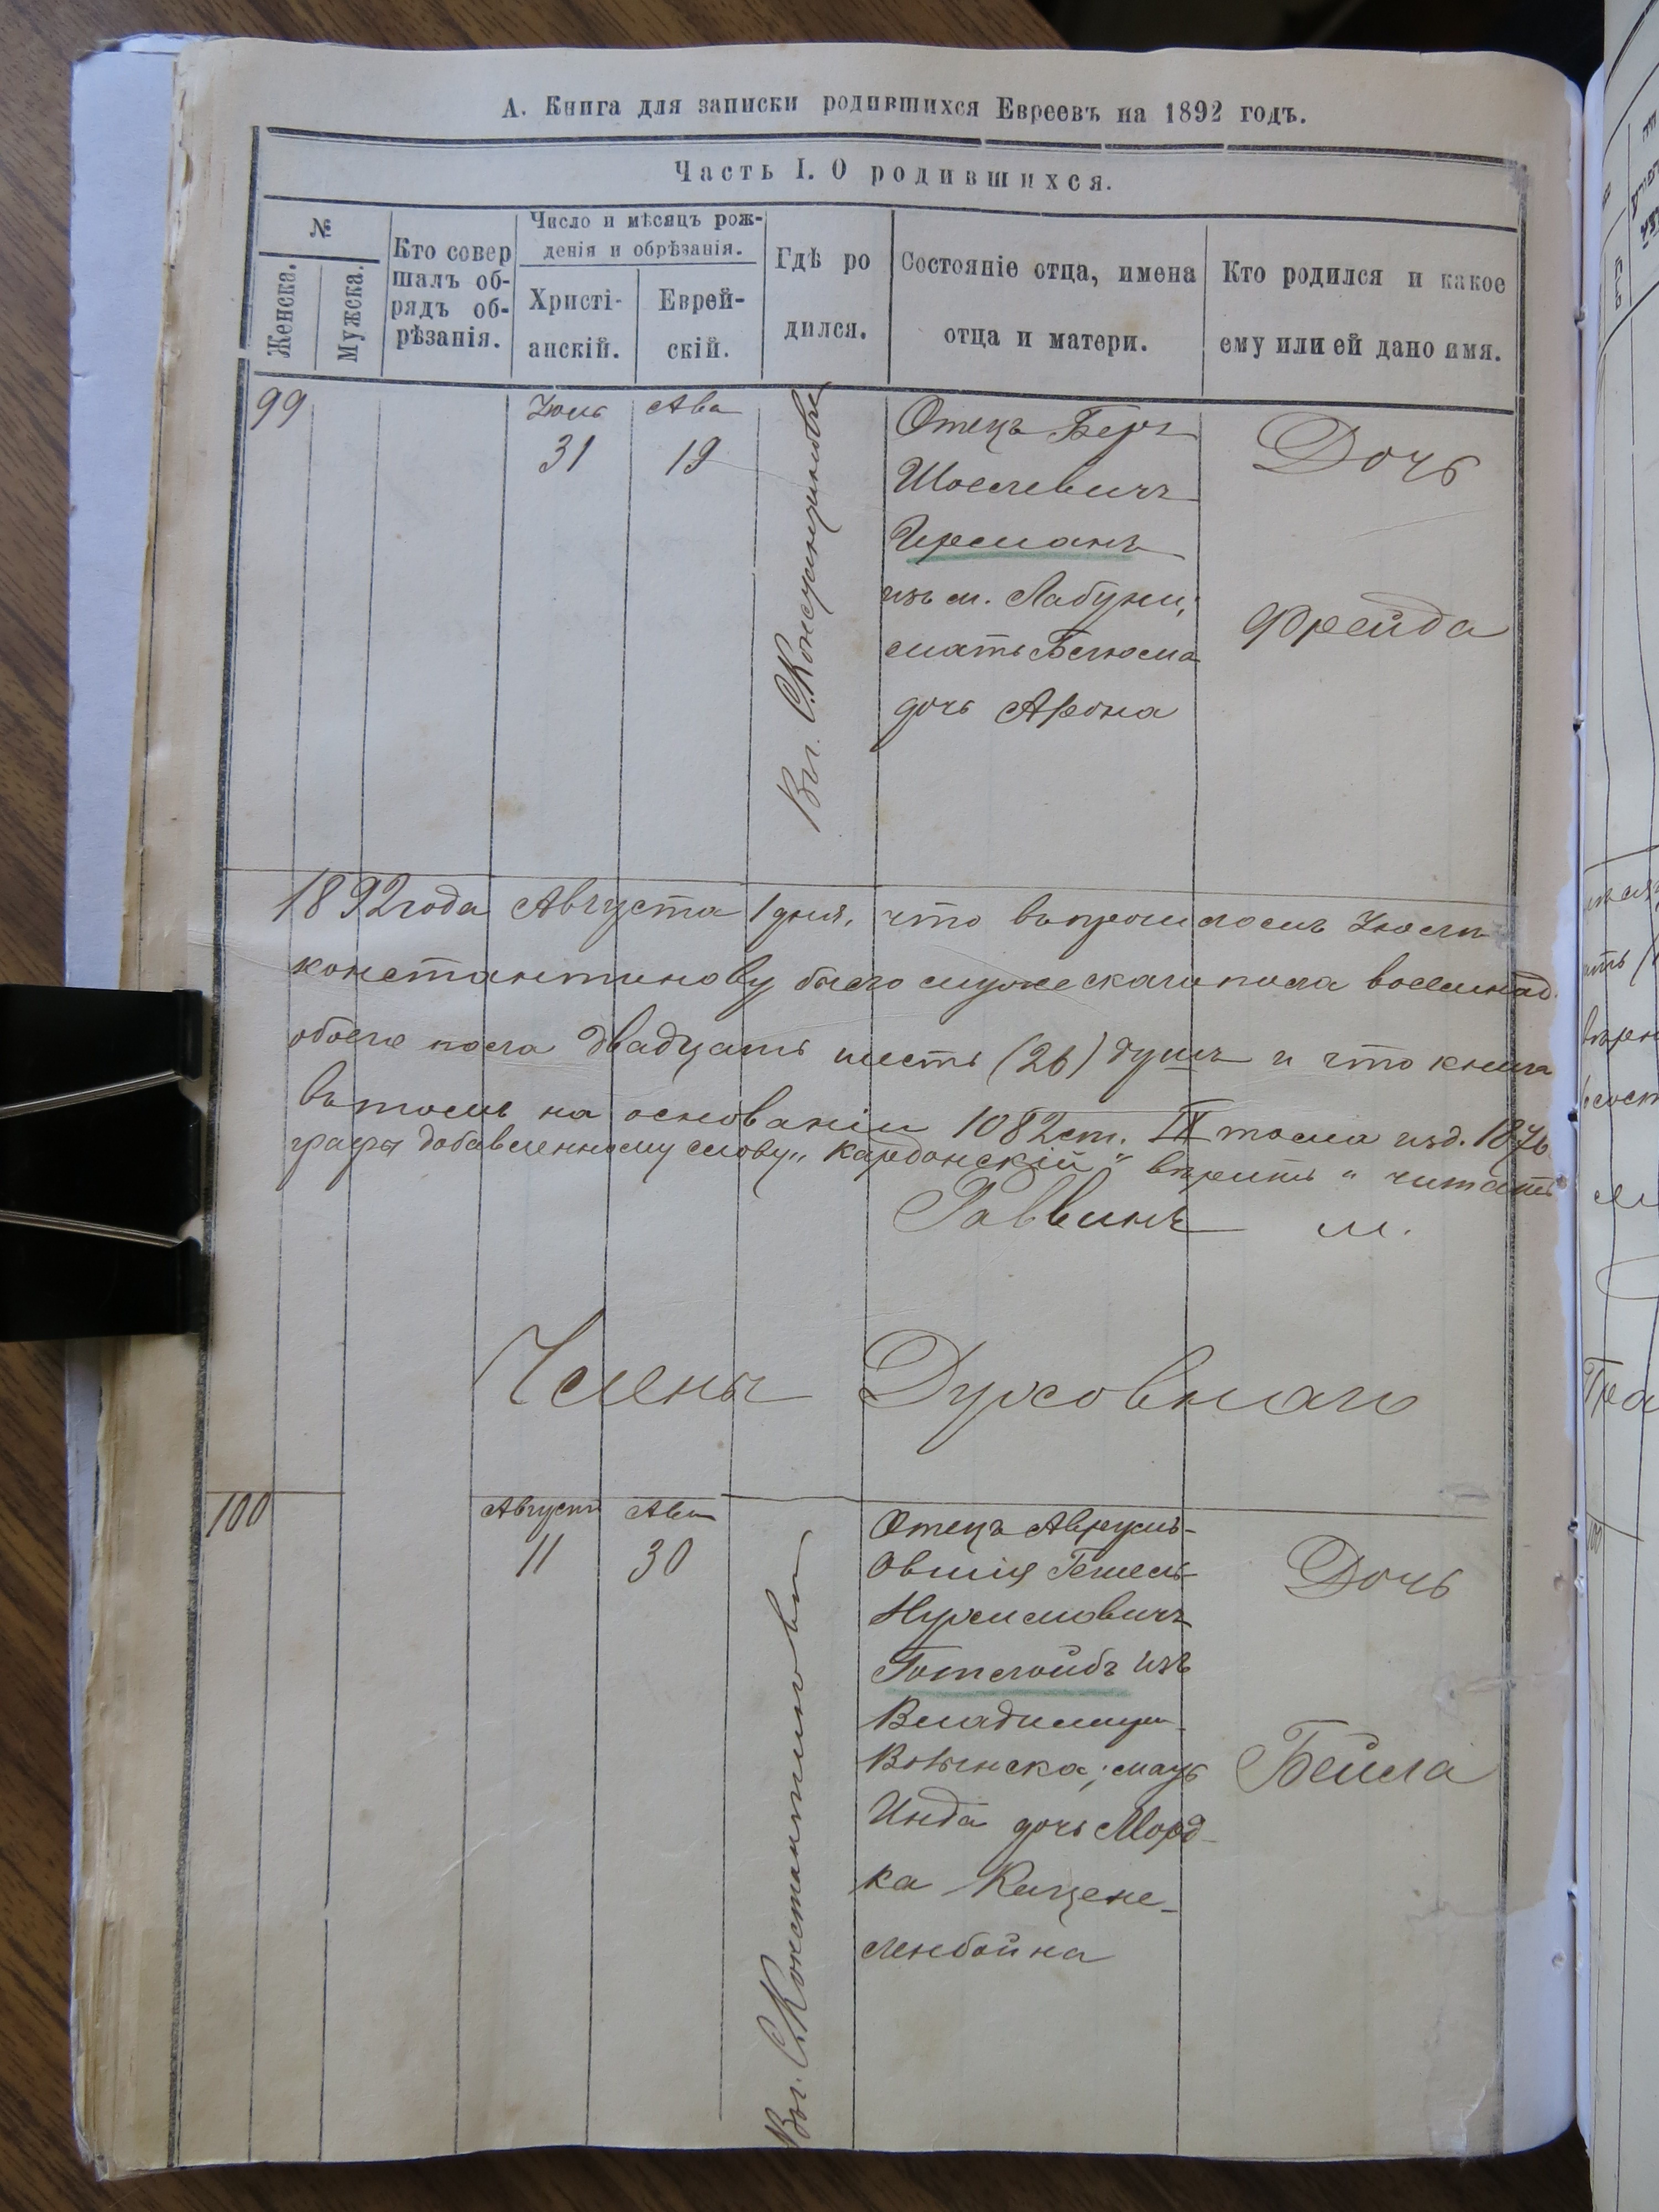 А. Книга для записки родившихся Евреевъ на 1892 годъ.
Часть I. О родившихся.
№
Женска.
Мужска.
Кто совер
шалъ об-
рядъ об-
рѣзанія.
Число и мѣсяцъ рож-
денія и обрѣзанія.
Христі-
анскій.
Еврей-
скій.
Гдѣ ро
дился.
Состояніе отца, имена
отца и матери.
Кто родился и какое
ему или ей дано имя.
99
Июль
31
Ава
19
Въ г. С. Константиновѣ
Отецъ Беръ
Иоселевичъ
изъ м. Лабунь,
мать
дочь Арона
Дочь
Фрейда
1892 года Августа 1 дня, что въ прошломъ Июлѣ
константинову было мужескаго пола восемнад
обоего пола двадцать шесть (26) душъ и что книга
въ томъ на основаніи 1082 ст. IX тома изд. 1876
графы добавленному слову „Кардонскій“ вѣрить „читать
Раввинъ м.
Члены Духовнаго
100
Августъ
11
Ава
30
Въ г. С. Константиновѣ
Отецъ Аврумъ-
Овшія Гешель-
Нухимовичъ
Готлойбъ изъ
Владимира-
Волынска; мать
Инда дочь Морд-
ка Кацене-
ленбойна
Дочь
Бейла